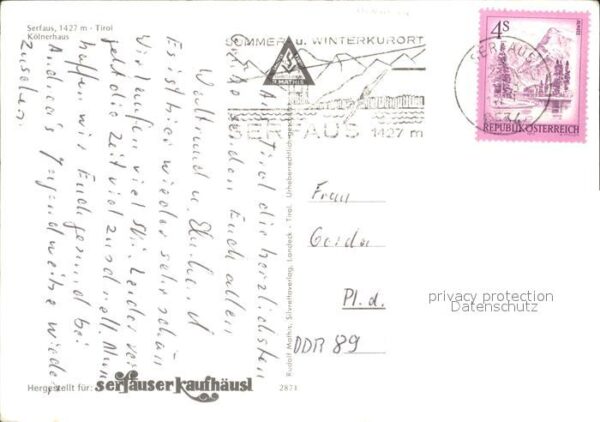 Serfaus, 1427 m - Tirol
Kölnerhaus
SOMMER u. WINTERKURORT
SERFAUS 1427 m
SERFAUS
4S
REPUBLIK ÖSTERREICH
Aus Tirol die herzlichsten
Grüße senden Euch allen
Waltraud u. Eberhard
Es ist hier wieder sehr schön
Wir laufen viel Ski. Leider ver-
geht die Zeit viel zu schnell. Nun
hoffen wir Euch gesund bei
Andrea's Jugendweihe wieder
zusehen.
Rudolf Mathis, Silvrettaverlag, Landeck - Tirol. Urheberrechtlich
Frau
Gerda
Pl. d.
DDR 89
privacy protection
Datenschutz
Hergestellt für: serfauser kaufhäusl
2871